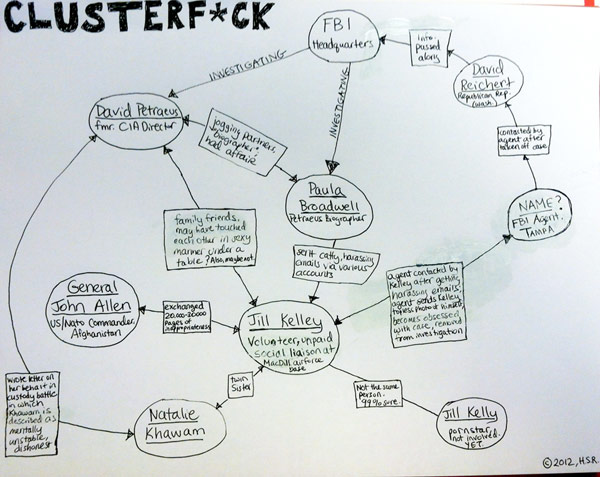 CLUSTERF*CK
FBI
Headquarters
info
passed
along
David
Reichert
Republican Rep.
(Wash)
contacted by
agent after
taken off case
NAME?
FBI Agent.
TAMPA
INVESTIGATING
INVESTIGATING
David Petraeus
fmr. CIA Director
jogging partners,
"biographer",
had affair
Paula
Broadwell
Petraeus Biographer
family friends,
may have touched
each other in sexy
manner under a
table? Also, maybe not.
sent catty, harassing
emails via various
accounts
agent contacted by
Kelley after getting
harassing emails,
agent sends Kelley
topless photo of himself,
becomes obsessed
with case, removed
from investigation
General
John Allen
US/Nato Commander,
Afghanistan
exchanged
20,000-30,000
pages of
inappropriateness
Jill Kelley
Volunteer, unpaid
social liaison at
MacDill airforce
base
wrote letter on
her behalf in
custody battle
in which
Khawam is
described as
mentally
unstable,
dishonest
twin
sister
Natalie
Khawam
Not the same
person.
99% sure.
Jill Kelly
pornstar,
not involved.
YET
©2012, H.S.R.